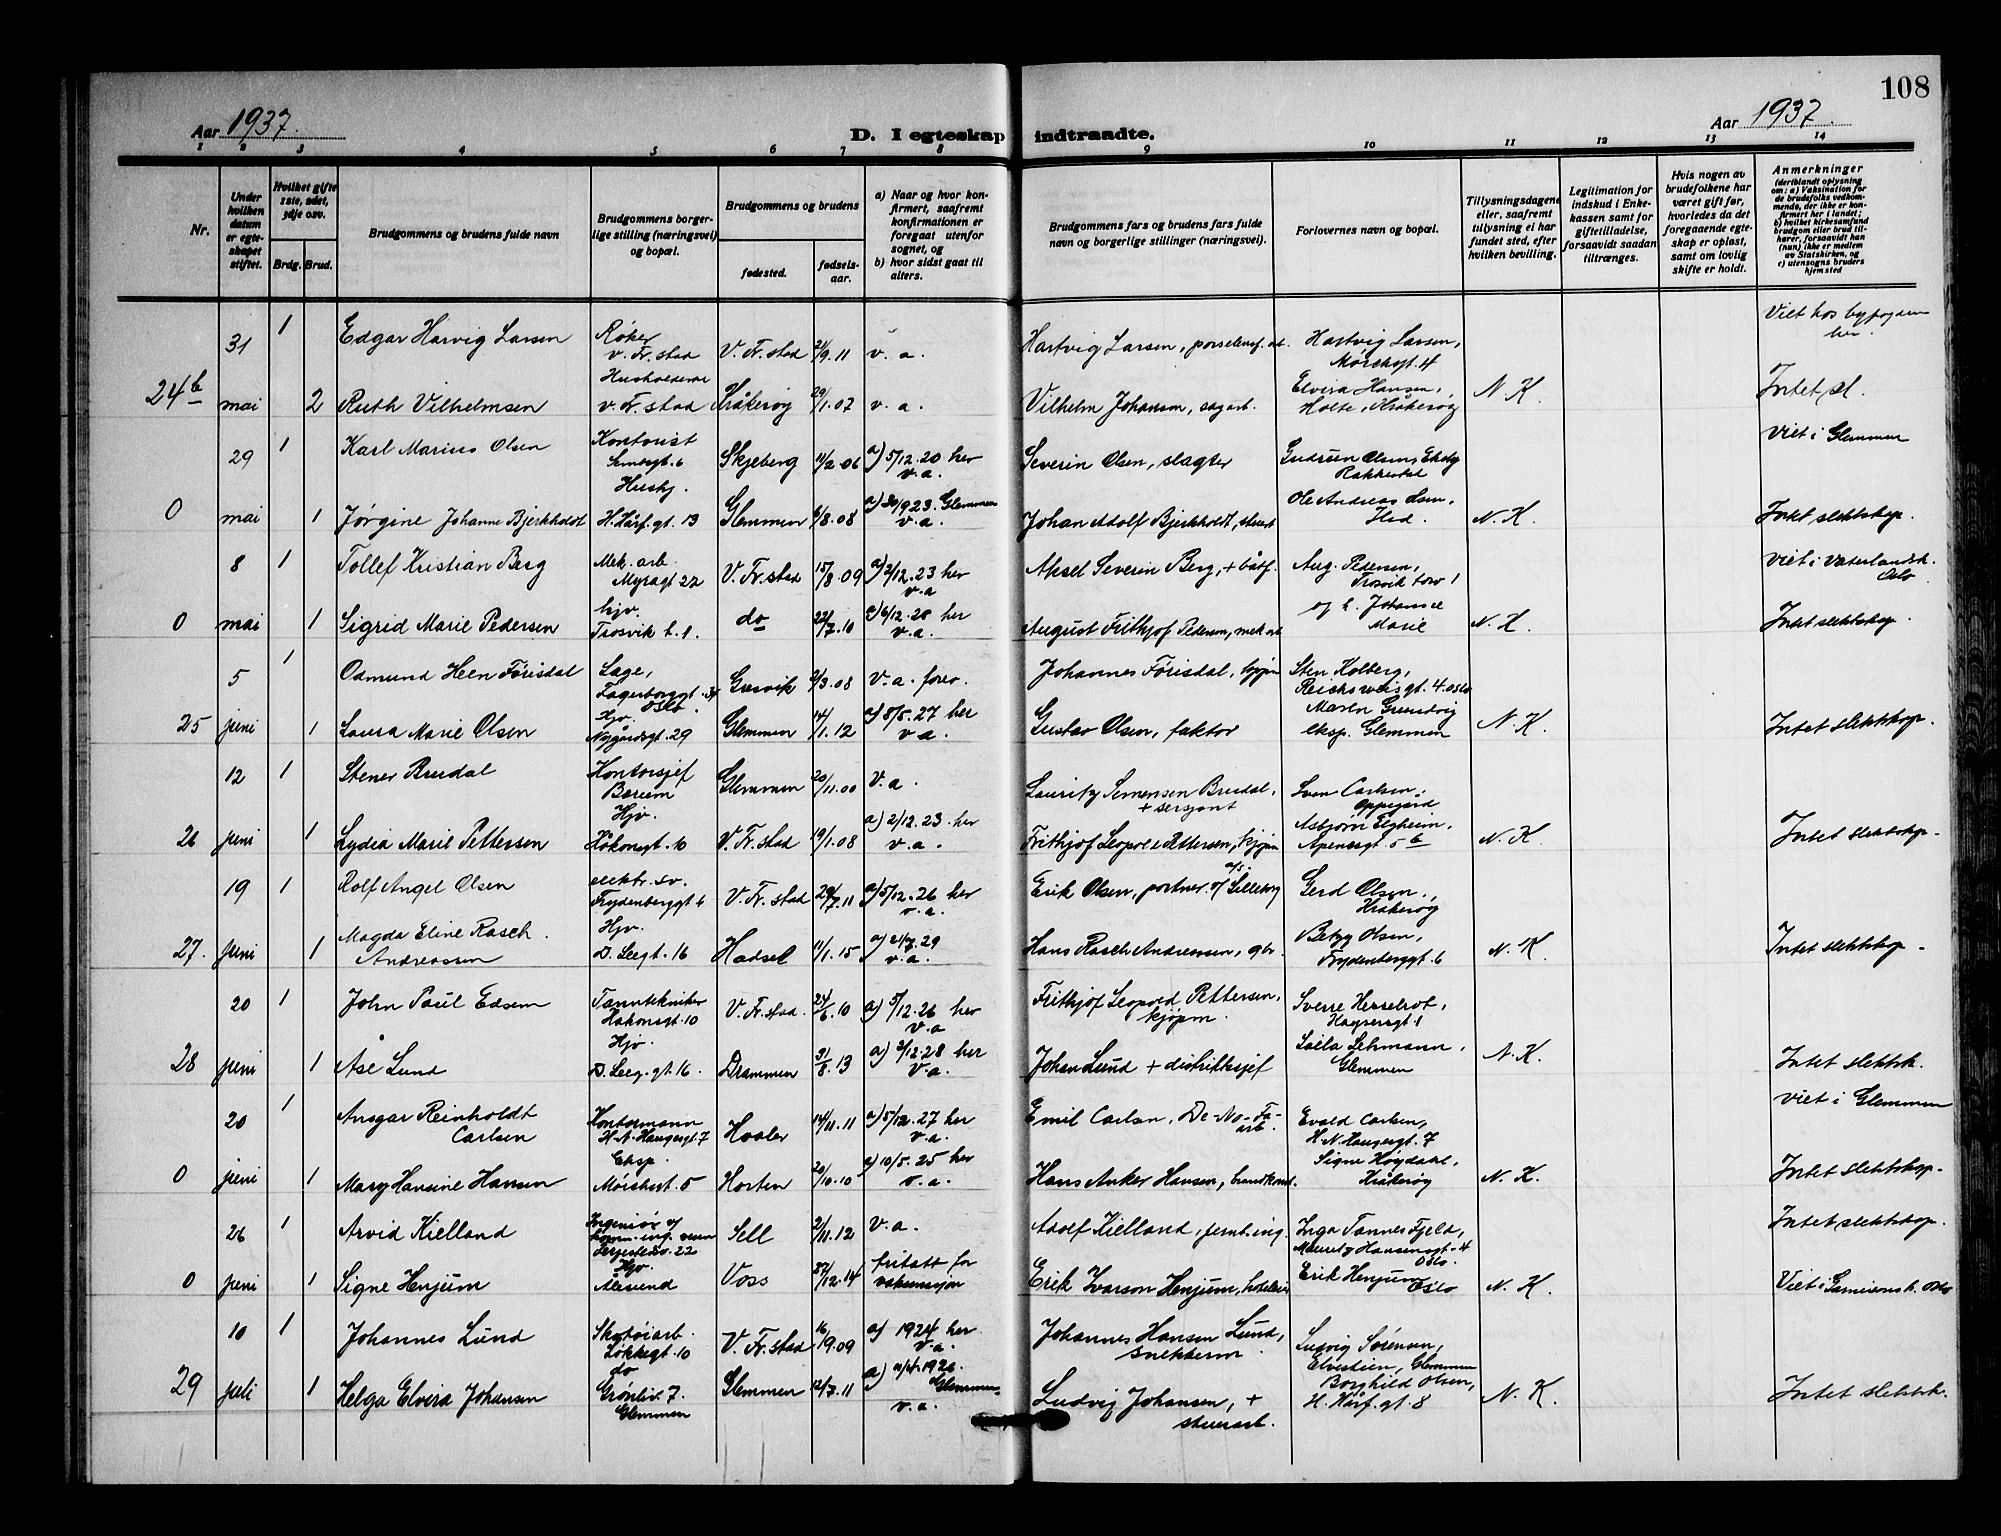 108
Aar 1937.
D. I egteskap indtraadte.
Aar 1937
1 2 3 4 5 6 7 8 9 10 11 12 13 14
Nr.
Under hvilken datum er egteskapet stiftet.
Hvilket gifte 1ste, 2det, 3dje osv.
Brdg. Brud.
Brudgommens og brudens fulde navn
Brudgommens borgerlige stilling (næringsvei) og bopæl.
Brudgommens og brudens
fødested.
fødselsaar.
a) Naar og hvor konfirmert, saafremt konfirmationen er foregaat utenfor sognet, og
b) hvor sidst gaat til alters.
Brudgommens fars og brudens fars fulde navn og borgerlige stillinger (næringsvei).
Forlovernes navn og bopæl.
Tillysningsdagene eller, saafremt tillysning ei har fundet sted, efter hvilken bevilling.
Legitimation for indskud i Enkekassen samt for giftetilladelse, forsaavidt saadan tiltrænges.
Hvis nogen av brudefolkene har været gift før, hvorledes da det foregaaende egteskap er opløst, samt om lovlig skifte er holdt.
Anmerkninger
(deriblandt oplysning om: a) Vaksination for de brudefolks vedkommende, der ikke er konfirmert her i landet; b) hvilket kirkesamfund brudgom eller brud tilhører, forsaavidt han (hun) ikke er medlem av Statskirken, og c) utensogns bruders hjemsted
31 1 Edgar Harvig Larsen Røker v. Fr.stad V. Fr. stad 21/9.11 v. a. Hartvig Larsen, Hartvig Larsen, Mørskgt. 4 Viet hos byfogden her
24b mai 2 Ruth Vilhelmsen v. Fr. stad Kråkerøy 29/1.07 v. a. Vilhelm Johansen, sagarb. Elvira Hansen, Holte, Kråkerøy N. K. Intet sl.
29 1 Karl Marius Olsen Kontorist Skjeberg 11/2.06 a) 5/12.20 her v. a. Severin Olsen, slagter Gudrun Olsen, Rakkestad Viet i Glemmen
0 mai 1 Jørgine Johanne Bjerkholdt Husbj. H. Hårf. gt. 13 Glemmen 6/8.08 a) 30/9 23. Glemmen v. a. Johan Adolf Bjerkholdt, Ole Andreas Olsen, N. K. Intet slektskap.
8 1 Tollef Kristian Berg Mek. arb. Myragt 22 V. Fr. stad 15/8.09 a) 2/12.23 her v. a Aksel Severin Berg, + Aug. Pedersen, Trosvik torv 1 Viet i Vaterlandsk. Oslo
0 mai 1 Sigrid Marie Pedersen hjv. Trosvik t. 1. do 22/7.10 a) 6/12.25 her v. a. August Frithjof Pedersen, mek arb og h. Johanne Marie N. K. Intet slektskap.
5 1 Odmund Heen Førisdal Fagerborggt. Oslo Gresvik 2/3.08 v. a. forv. Johannes Førisdal, kjøpm Sten Kolberg, Reichsweisgt. 4. Oslo
25 juni 1 Laura Marie Olsen Hjv. Nygårdsgt. 29 Glemmen 14/1.12 a) 8/5.27 her v. a. Gustav Olsen, faktor eksp. Glemmen N. K. Intet slektskap.
12 1 Stener Brudal Kontorsjef Bærum Glemmen 20/11.00 v. a. Lauritz Simensen Brudal, + sersjant Sven Carlsen, Oppegård
26 juni 1 Lydia Marie Pettersen Hjv. Håkonsgt. 10 V. Fr. stad 19/1.08 a) 2/12.23. her v. a. Frithjof Leopold Pettersen, kjøpm Asbjørn Elgheim, Apenesgt. 5 b N. K. Intet slektskap.
19 1 Rolf Angel Olsen elektr. sv. Frydenberggt 6 V. Fr. stad 29/7.11 a) 5/12.26 her v. a. Erik Olsen, portner Gerd Olsen, Kråkerøy
27. juni 1 Magda Eline Rasch Andreassen Hjv. D. Leegt. 16 Hadsel 11/1.15 v. a. Hans Rasch Andreassen, Betzy Olsen, Frydenberggt. 6 N. K. Intet slektskap.
20 1 John Paul Edsem Tanntekniker Håkonsgt. 10 V. Fr. stad. 24/6.10 a) 5/12.26 her v. a Frithjof Leopold Pettersen, kjøpm. Sverre Hesselrot, Kaysersgt. 1
28 juni 1 Åse Lund Hjv. D. Leeg. gt. 16. Drammen 31/8.13 a) 2/12.28 her v. a. Johan Lund + distriktsjef Laila Lehmann, Glemmen N. K. Intet slektsk.
20 1 Ansgar Reinholdt Carlsen Kontormann H. N. Haugesgt. 7 Hvaler 14/11.11 a) 5/12.27 her v. a. Emil Carlsen, De-No-Fa arb. Evald Carlsen, H. N. Haugesgt. 7 viet i Glemmen
0 juni 1 Mary Hansine Hansen Eksp. Mørskgt. 5 Horten 20/10.10 a) 10/5.25 her v. a. Hans Anker Hansen, brandkonst. Signe Høgdahl, Kråkerøy N. K. Intet slektskap.
26 1 Arvid Kielland Ingeniør Sell 2/11.12 v. a. Adolf Kielland, jernb. ing. Inga Tannes Fjeld, Mauritz Hansensgt. 4 Oslo. Intet slektskap.
0 juni 1 Signe Henjum Hjv. Ålesund Voss 27/12.14 fritatt for vaksinasjon Erik Ivarson Henjum, Erik Henjum Oslo N. K. Viet i Gamleensk. Oslo
10 1 Johannes Lund Skotøiarb. Løkkegt. 10 V. Fr. stad 16/9.09 a) 1924 her. v. a. Johannes Hansen Lund, snekkerm Ludvig Sørensen, Glemmen
29 juli 1 Helga Elvira Johansen do Grønliv. 7. Glemmen Glemmen 12/7.11 a) 11/4.1926. Glemmen v. a. Ludvig Johansen, + stuerarb. Borghild Olsen, H. Hårf. gt. 8 N. K. Intet slektsk.